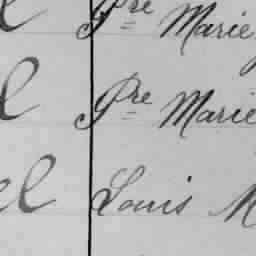 Pre Marie
Pre Marie
Louis M